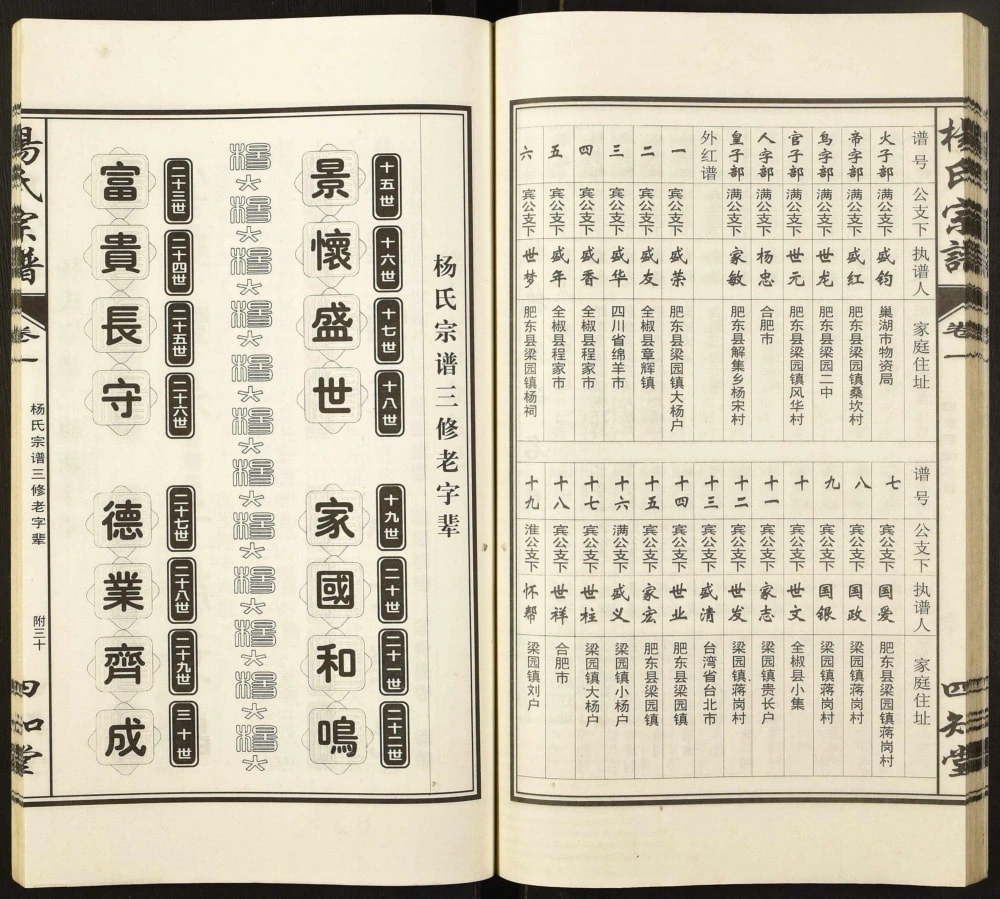 杨氏宗譜
卷一
四知堂
谱号 公支下 执谱人 家庭住址
火子部 满公支下 盛钧 巢湖市物资局
帝字部 满公支下 盛红 肥东县梁园镇桑坎村
鸟字部 满公支下 世龙 肥东县梁园二中
官子部 满公支下 世元 肥东县梁园镇风华村
人字部 满公支下 杨忠 合肥市
皇子部 满公支下 家敏 肥东县解集乡杨宋村
外红谱
一 宾公支下 盛荣 肥东县梁园镇大杨户
二 宾公支下 盛友 全椒县章辉镇
三 宾公支下 盛华 四川省绵羊市
四 宾公支下 盛香 全椒县程家市
五 宾公支下 盛年 全椒县程家市
六 宾公支下 世梦 肥东县梁园镇杨祠
谱号 公支下 执谱人 家庭住址
七 宾公支下 国爱 肥东县梁园镇蒋岗村
八 宾公支下 国政 梁园镇蒋岗村
九 宾公支下 国银 梁园镇蒋岗村
十 宾公支下 世文 全椒县小集
十一 宾公支下 家志 梁园镇贵长户
十二 宾公支下 世发 梁园镇蒋岗村
十三 宾公支下 盛清 台湾省台北市
十四 宾公支下 世业 肥东县梁园镇
十五 宾公支下 家宏 肥东县梁园镇
十六 满公支下 盛义 梁园镇小杨户
十七 宾公支下 世柱 梁园镇大杨户
十八 宾公支下 世祥 合肥市
十九 淮公支下 怀帮 梁园镇刘户
杨氏宗谱三修老字辈
十五世 十六世 十七世 十八世
景懷盛世
十九世 二十世 二十一世 二十二世
家國和鳴
二十三世 二十四世 二十五世 二十六世
富貴長守
二十七世 二十八世 二十九世 三十世
德業齊成
楊氏宗譜
卷一
杨氏宗谱三修老字辈
附三十
四知堂